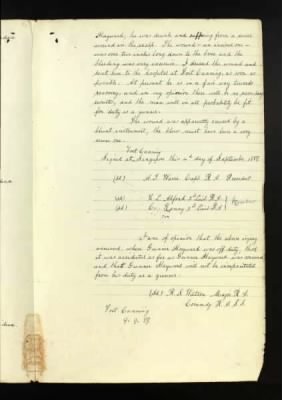 Hayward, he was drunk and suffering from a severe
wound in the scalp. The wound - an incised one -
was over two inches long down to the bone and the
bleeding was very excessive. I dressed the wound and
sent him to the hospital at Fort Canning, as soon as
possible. At present he is in a fair way towards
recovery, and in my opinion there will be no permanent
results, and the man will in all probability be fit
for duty as a gunner.
The wound was apparently caused by a
blunt instrument, the blow must have been a very
severe one.
Fort Canning
Signed at Singapore this 4th day of September 188
(sd) Capt. R.A. President
(sd) Alford Lieut R.A.
(sd) Lieut R.A.
I am of opinion that the above injury
occurred, when Gunner Hayward was off duty, that
it was accidental as far as Gunner Hayward was concerned
and that Gunner Hayward will not be incapacitated
from his duty as a gunner.
(sd) R. S. Watson Major R.A.
Fort Canning